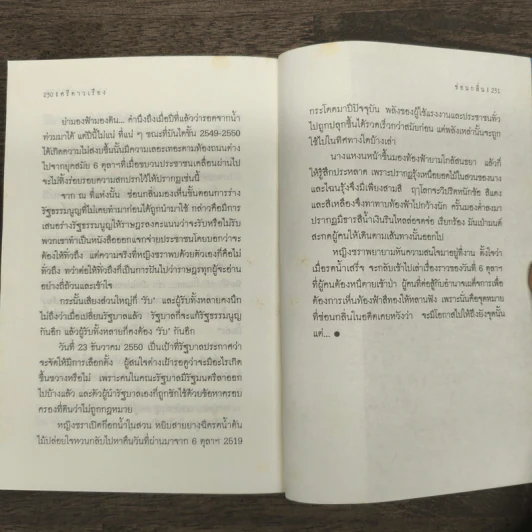 250 | ศรีดาวเรือง
ย่ามองฟ้ามองดิน... คำนึงถึงเมื่อปีที่แล้วว่ารอดจากน้ำ
ท่วมมาได้ แต่ปีนี้ไม่แน่ ที่แน่ ๆ ขณะที่บันไดขั้น 2549-2550
ได้เกิดความไม่สงบขึ้นนั้นมีความเลอะเทอะตามท้องถนนต่าง
ไปจากยุคสมัย 6 ตุลาฯ เมื่อขบวนประชาชนเคลื่อนผ่านไป
จะไม่ทิ้งร่องรอยความสกปรกไว้ให้ปรากฏเช่นนี้
จาก ณ ที่แห่งนั้น ซ่อนกลิ่นมองเห็นขั้นตอนการร่าง
รัฐธรรมนูญที่ไม่เคยทำมาก่อนได้ถูกนำมาใช้ กล่าวคือมีการ
เสนอร่างรัฐธรรมนูญให้ราษฎรลงคะแนนว่าจะรับหรือไม่รับ
พวกเขาทำเป็นหนังสือออกแจกจ่ายประชาชนโดยบอกว่าจะ
ต้องให้ทั่วถึง แต่ความจริงที่หญิงชราพบด้วยตัวเองก็คือไม่
ทั่วถึง ทว่าต่อให้ทั่วถึงก็เป็นการฝันไปว่าราษฎรทุกผู้จะอ่าน
อย่างถี่ถ้วนและเข้าใจ
กระนั้นเสียงส่วนใหญ่ก็ 'รับ' และผู้รับทั้งหลายคงนึก
ไม่ถึงว่าเมื่อเปลี่ยนรัฐบาลแล้ว รัฐบาลก็จะแก้รัฐธรรมนูญ
กันอีก แล้วผู้รับทั้งหลายก็คงต้อง 'รับ' กันอีก
วันที่ 23 ธันวาคม 2550 เป็นเป้าที่รัฐบาลประกาศว่า
จะจัดให้มีการเลือกตั้ง ผู้สนใจต่างเฝ้ารอดูว่าจะมีอะไรเกิด
ขึ้นขวางหรือไม่ เพราะคนในคณะรัฐบาลมีรัฐมนตรีลาออก
ไปบ้างแล้ว และตัวผู้นำรัฐบาลเองก็ถูกซักไซ้ด้วยข้อหาครอบ
ครองที่ดินว่าไม่ถูกกฎหมาย
หญิงชราเปิดก๊อกน้ำในสวน หยิบสายยางฉีดรดน้ำต้น
ไม้ปล่อยใจหวนกลับไปหาคืนวันที่ผ่านมาจาก 6 ตุลาฯ 2519
ซ่อนกลิ่น | 251
กระโดดมาปีปัจจุบัน พลังของผู้ใช้แรงงานและประชาชนทั่ว
ไปถูกปลุกขึ้นได้รวดเร็วกว่าสมัยก่อน แต่พลังเหล่านั้นจะถูก
ใช้ไปในทิศทางใดบ้างเล่า
นางแหงนหน้าขึ้นมองท้องฟ้ายามใกล้สนธยา แล้วก็
ให้รู้สึกประหลาด เพราะปรากฏรุ้งเหนือยอดไม้ในสวนของนาง
และโฉนรุ้งจึงมีเพียงสามสี ฤๅโลกจะวิปริตหนักข้อ สีแดง
และสีเหลืองจึงทาทาบท้องฟ้าไปกว้างนัก ครั้นมองต่ำลงมา
ปรากฏมีธารสีน้ำเงินรินไหลสอดคล่อ เรียบกร้อง มันเป่ามนต์
สะกดผู้คนให้เดินตามเส้นทางนั้นออกไป
หญิงชราพยายามหันความสนใจมาอยู่ที่งาน ตั้งใจว่า
เมื่อรดน้ำเสร็จ จะกลับเข้าไปเล่าเรื่องราวของวันที่ 6 ตุลาฯ
ที่ผู้คนต้องหนีตายเข้าป่า ผู้คนที่ต่อสู้กับอำนาจเผด็จการเพื่อ
ต้องการเห็นท้องฟ้าสีทองให้หลานฟัง เพราะนั่นคือจุดหมาย
ที่ซ่อนกลิ่นในอดีตเคยหวังว่า จะมีโอกาสไปให้ถึงยังจุดนั้น
แต่... ●